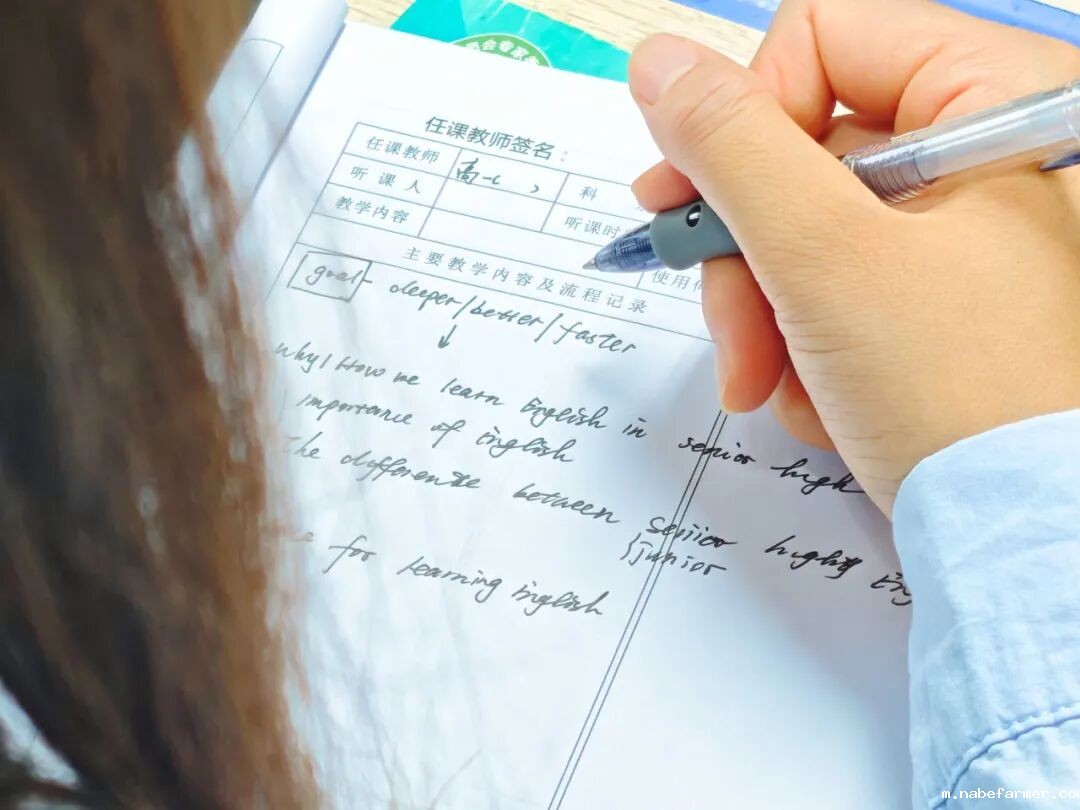 会专家
任课教师签名：
任课教师 高一 科
听课人 听课时
教学内容 使用
主要教学内容及流程记录
goal - deeper/better/faster
↓
Why/How we learn English in senior high
importance of English
The difference between senior high
/junior
for learning English
m.nabefarmer.com